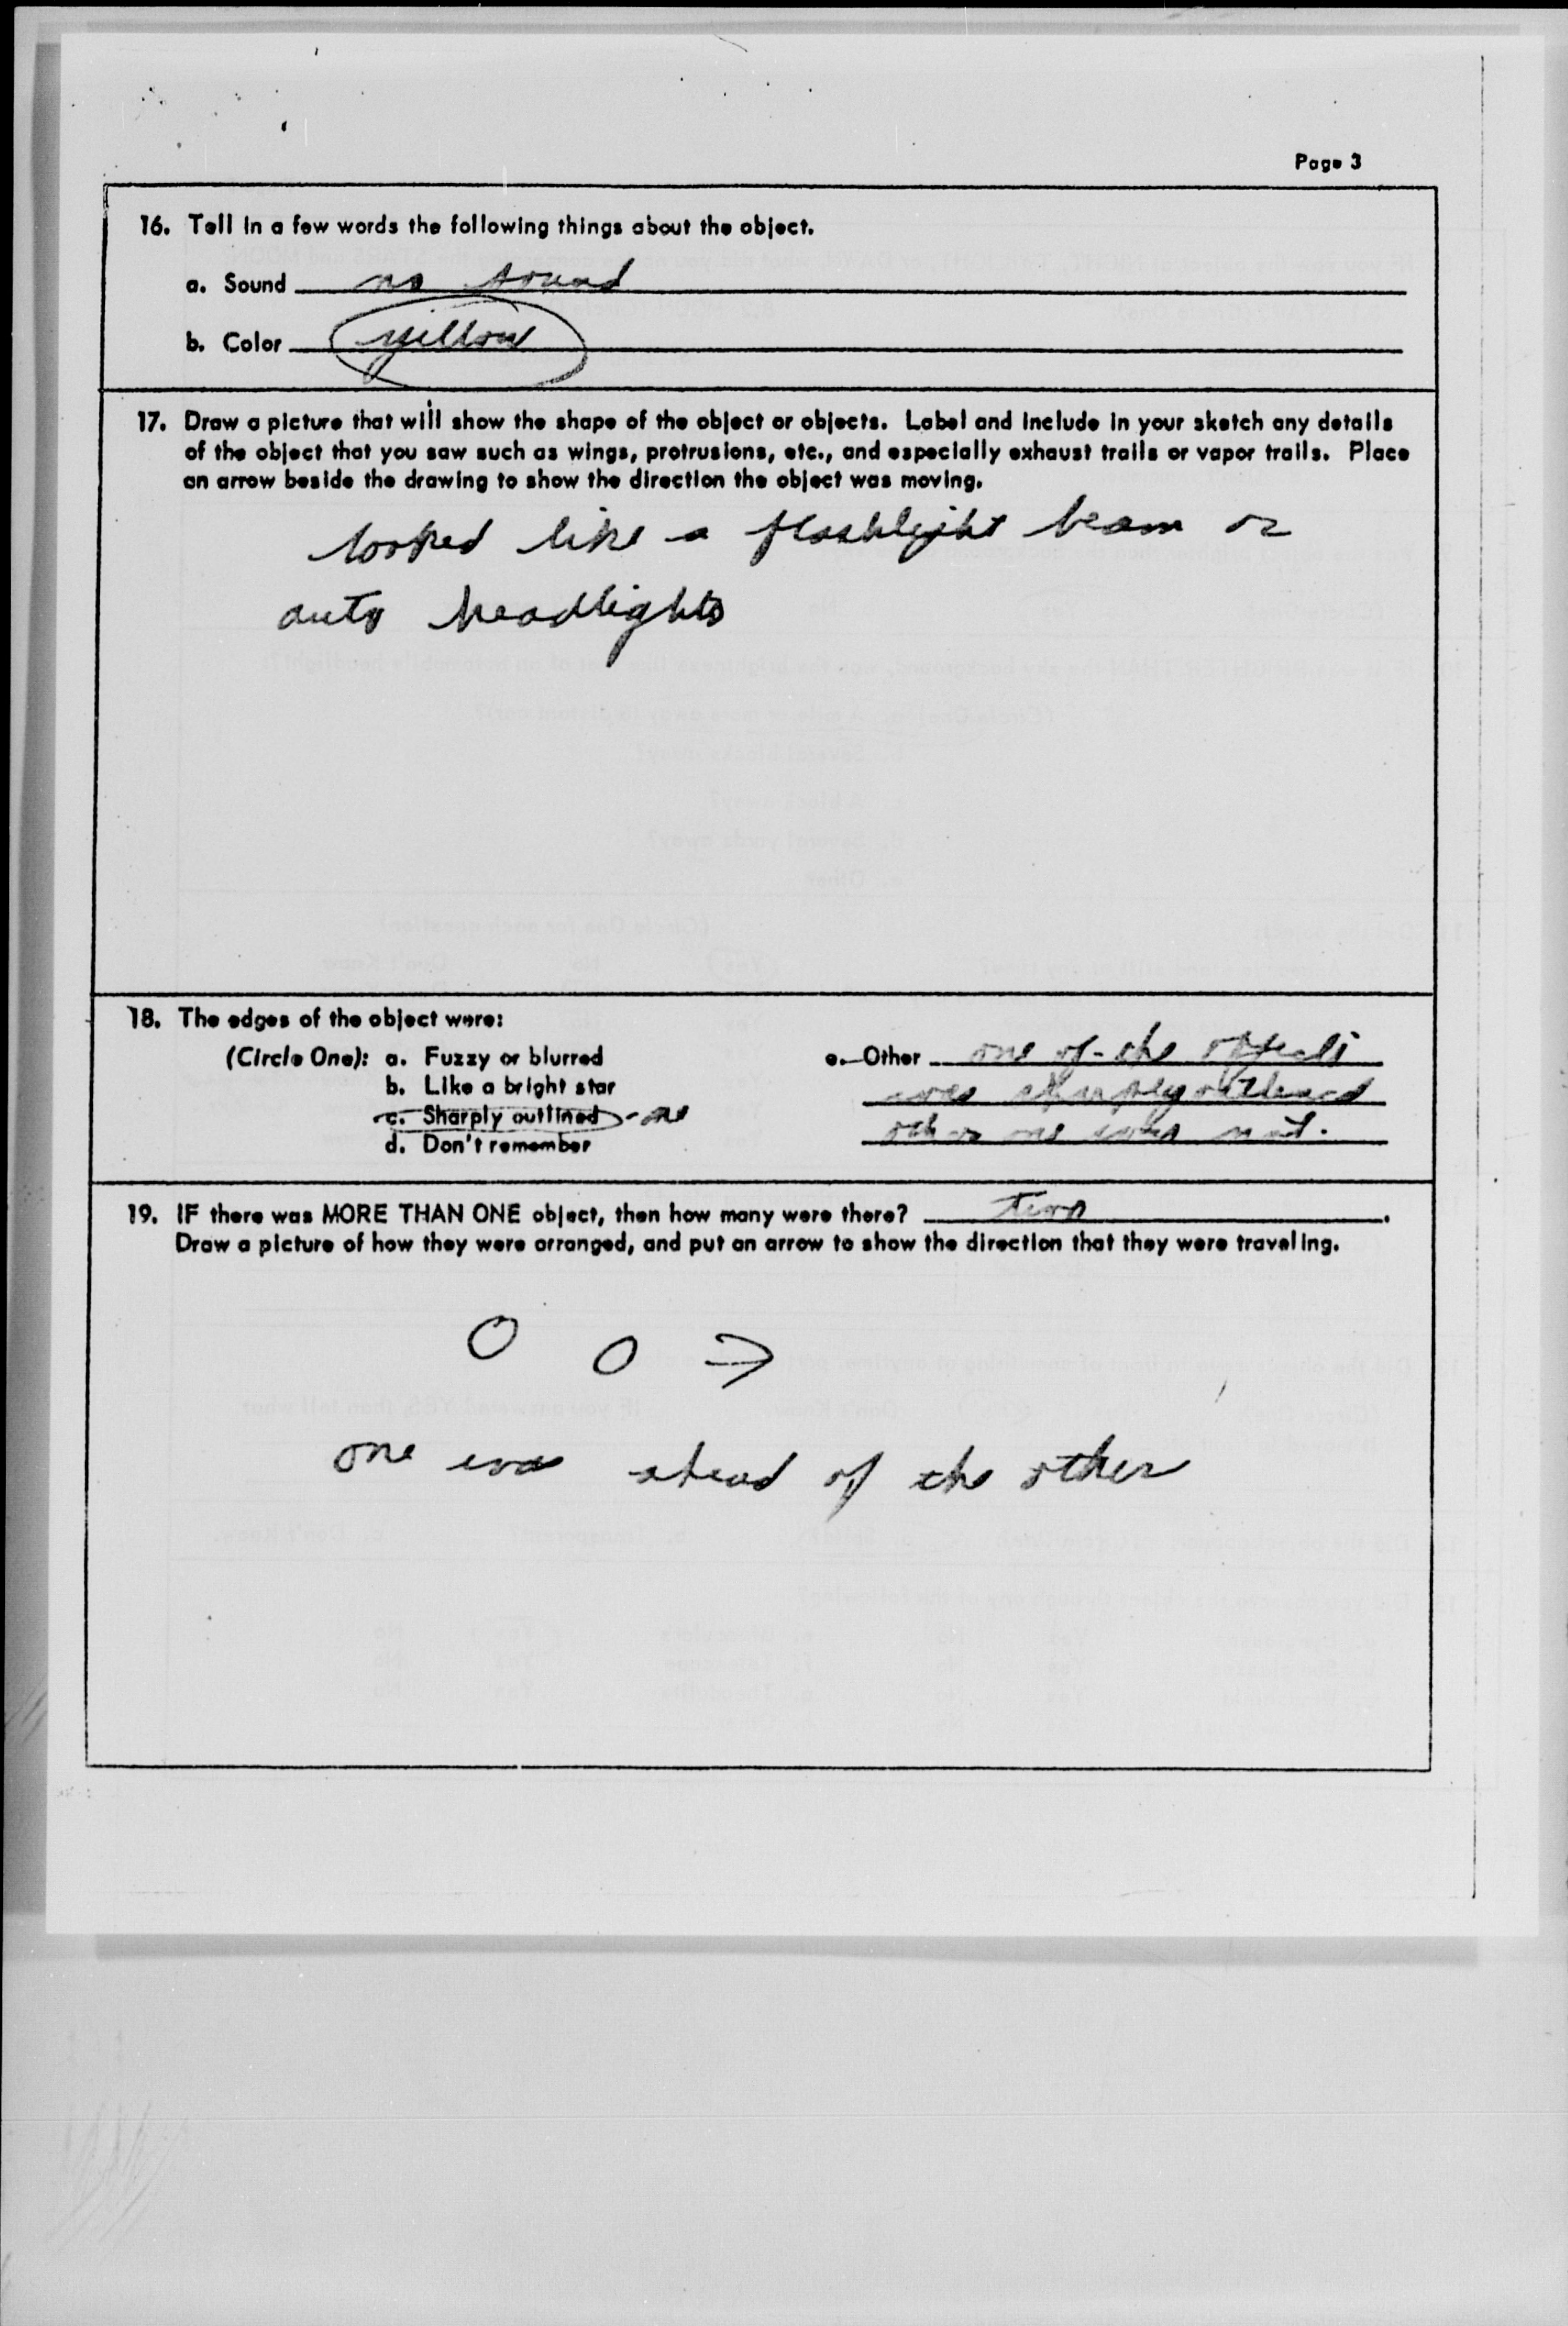 Page 3
16. Tell in a few words the following things about the object.
a. Sound no sound
b. Color yellow
17. Draw a picture that will show the shape of the object or objects. Label and include in your sketch any details
of the object that you saw such as wings, protrusions, etc., and especially exhaust trails or vapor trails. Place
an arrow beside the drawing to show the direction the object was moving.
looked like a flashlight beam or
auto headlights
18. The edges of the object were:
(Circle One): a. Fuzzy or blurred
b. Like a bright star
c. Sharply outlined - one
d. Don't remember
e. Other one of the objects
was sharply outlined
other one was not.
19. IF there was MORE THAN ONE object, then how many were there? two.
Draw a picture of how they were arranged, and put an arrow to show the direction that they were traveling.
one was ahead of the other